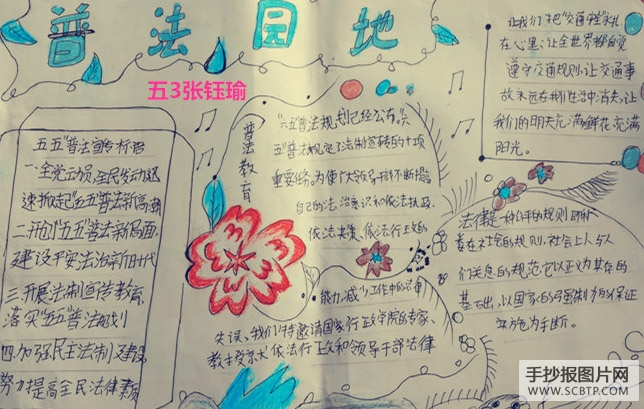 普法园地
五3张钰瑜
五五"普法宣传标语
一.全党动员,全民发动,迅
速掀起"五五"普法新高潮
二.开创"五五"普法新局面,
建设平安法治新时代
三.开展法制宣传教育,
落实"五五"普法规划
四.加强民主法制建设,
努力提高全民法律素质
普法教育
"六五"普法规划已经公布。"六
五"普法规定了法制宣传的十项
重要任务。为使广大领导干部不断提高
自己的法治意识和依法执政、
依法决策、依法行政的
能力,减少工作中的法律
失误,我们特邀请国家行政学院的专家、
教授
依法行政和领导干部法律
让我们把"交通安全"牢记
在心里;让全世界都自觉
遵守交通规则;让交通事
故永远在我们生活中消失;让
我们的明天充满鲜花,充满
阳光。
法律是一种公平的规则,
着在社会的规则,社会上人与人
们关息的规范,它以正义为其存的
基
出,以国家的强制力为保证
为手断。
手抄报图片网
WWW.SCBTP.COM